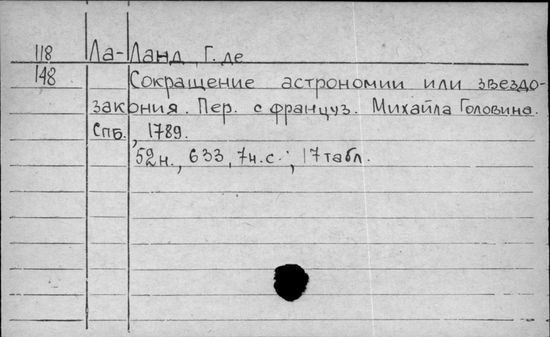 118 Ла-Ланд Г. де
148 Сокращение астрономии или звездо-
закония. Пер. с француз. Михайла Головина.
Спб., 1789.
52н., 633, 7н.с.; 17 табл.